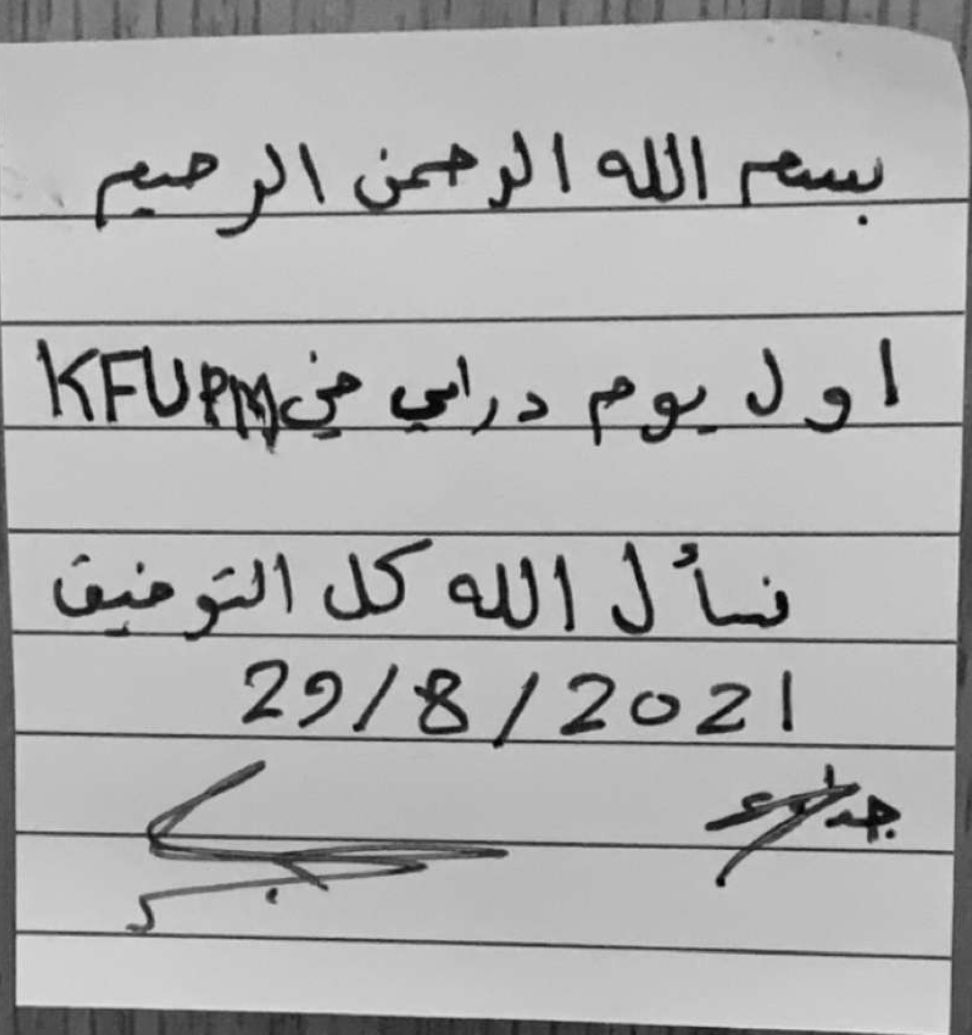 بسم الله الرحمن الرحيم
اول يوم دراسي في KFUPM
نسأل الله كل التوفيق
29/8/2021